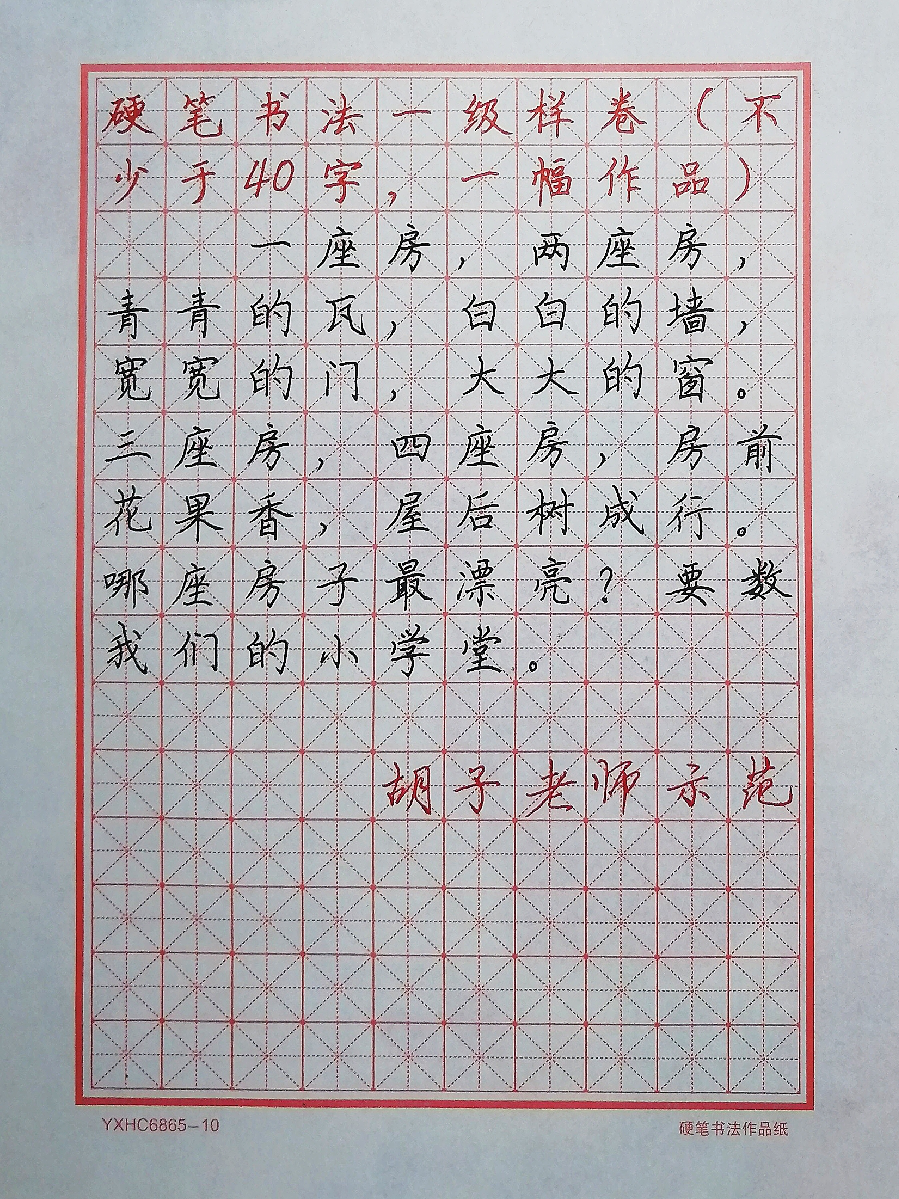 硬笔书法一级样卷（不
少于40字，一幅作品）
一座房，两座房，
青青的瓦，白白的墙，
宽宽的门，大大的窗。
三座房，四座房，房前
花果香，屋后树成行。
哪座房子最漂亮？要数
我们的小学堂。
胡子老师示范
YXHC6865-10
硬笔书法作品纸